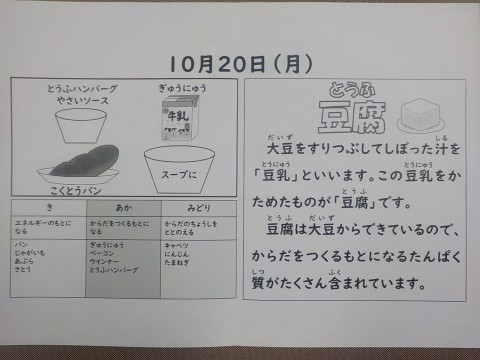 10月20日(月)
とうふハンバーグ
やさいソース
ぎゅうにゅう
牛乳
こくとうパン
スープに
き
あか
みどり
エネルギーのもとに
なる
からだをつくるもとに
なる
からだのちょうしを
ととのえる
パン
じゃがいも
あぶら
さとう
ぎゅうにゅう
ベーコン
ウインナー
とうふハンバーグ
キャベツ
にんじん
たまねぎ
とうふ
豆腐
だいず しる
大豆をすりつぶしてしぼった汁を
とうにゅう とうにゅう
「豆乳」といいます。この豆乳をか
とうふ
ためたものが「豆腐」です。
とうふ だいず
豆腐は大豆からできているので、
からだをつくるもとになるたんぱく
しつ ふく
質がたくさん含まれています。